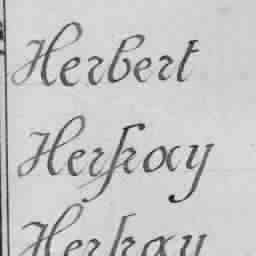 Herbert
Herfray
Herfray